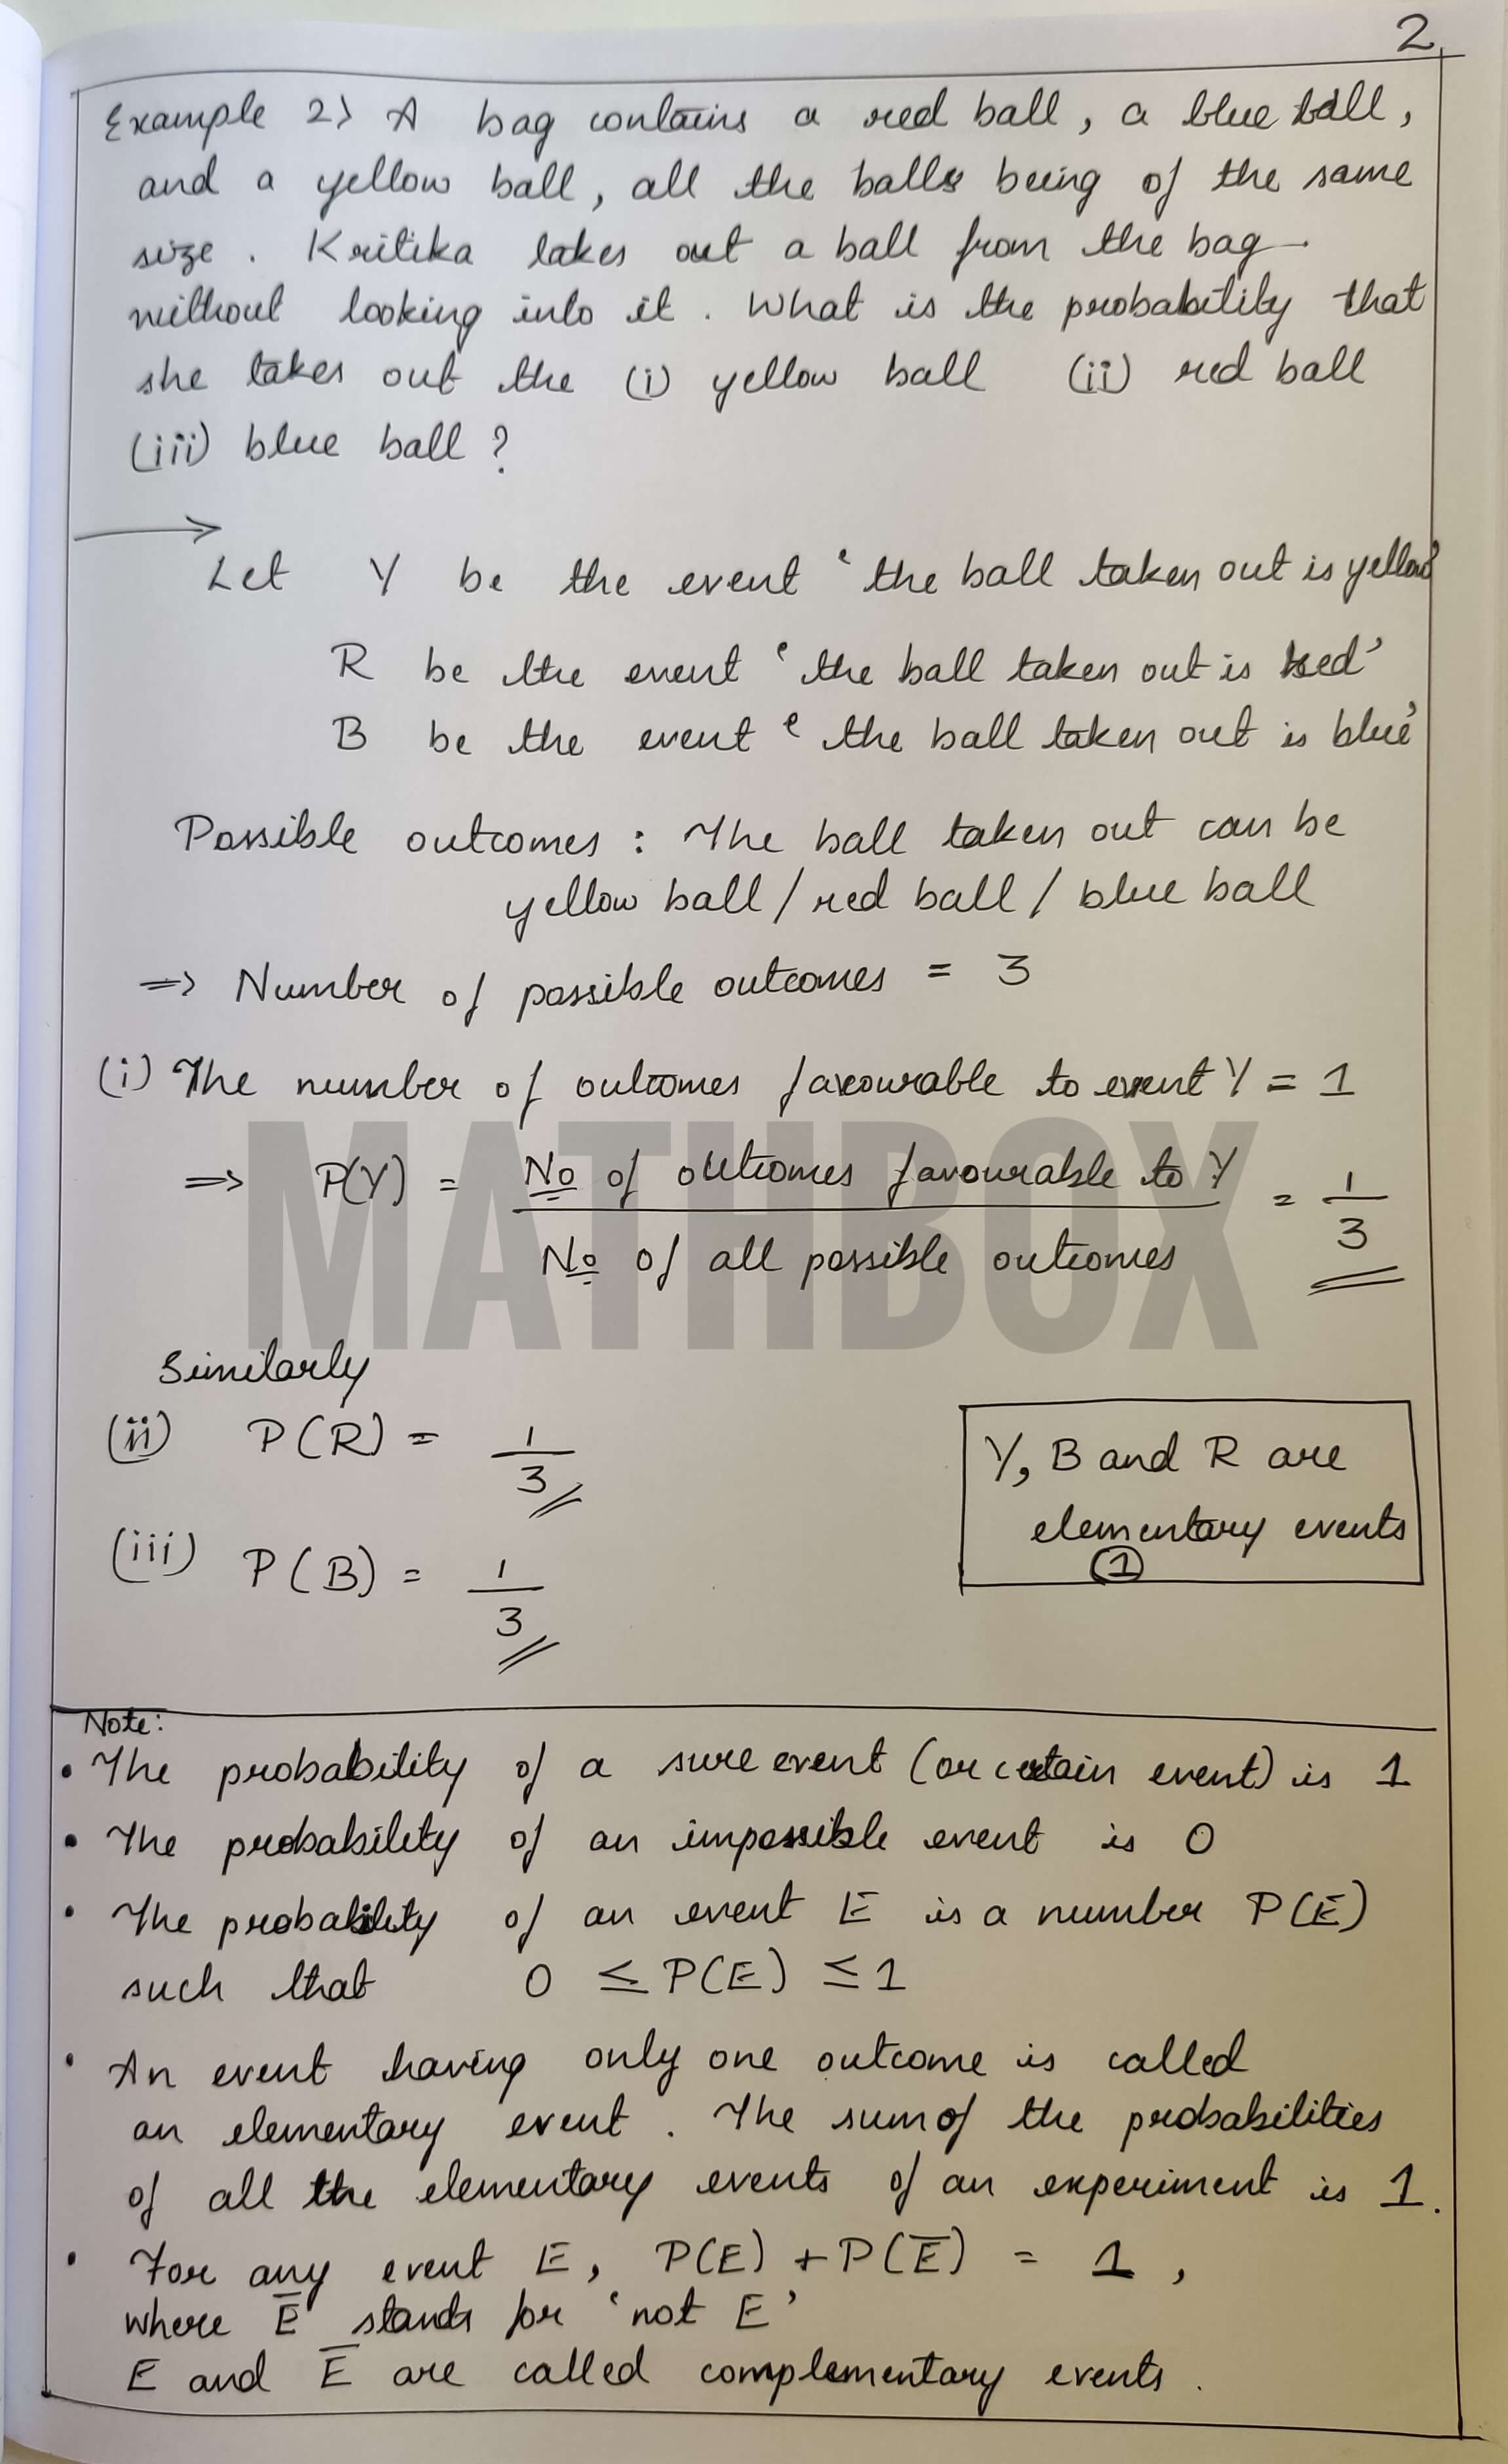 2
Example 2> A bag contains a red ball, a blue ball,
and a yellow ball, all the balls being of the same
size. Kritika takes out a ball from the bag
without looking into it. What is the probability that
she takes out the (i) yellow ball (ii) red ball
(iii) blue ball ?
Let Y be the event ‘the ball taken out is yellow’
R be the event ‘the ball taken out is red’
B be the event ‘the ball taken out is blue’
Possible outcomes : The ball taken out can be
yellow ball / red ball / blue ball
=> Number of possible outcomes = 3
(i) The number of outcomes favourable to event Y = 1
=> P(Y) = No of outcomes favourable to Y / No of all possible outcomes = 1/3
MATHBOX
Similarly
(ii) P(R) = 1/3
(iii) P(B) = 1/3
Y, B and R are
elementary events
1
Note:
• The probability of a sure event (or certain event) is 1
• The probability of an impossible event is 0
• The probability of an event E is a number P(E)
such that 0 ≤ P(E) ≤ 1
• An event having only one outcome is called
an elementary event. The sum of the probabilities
of all the elementary events of an experiment is 1.
• For any event E, P(E) + P(E̅) = 1,
where E̅ stands for ‘not E’
E and E̅ are called complementary events.